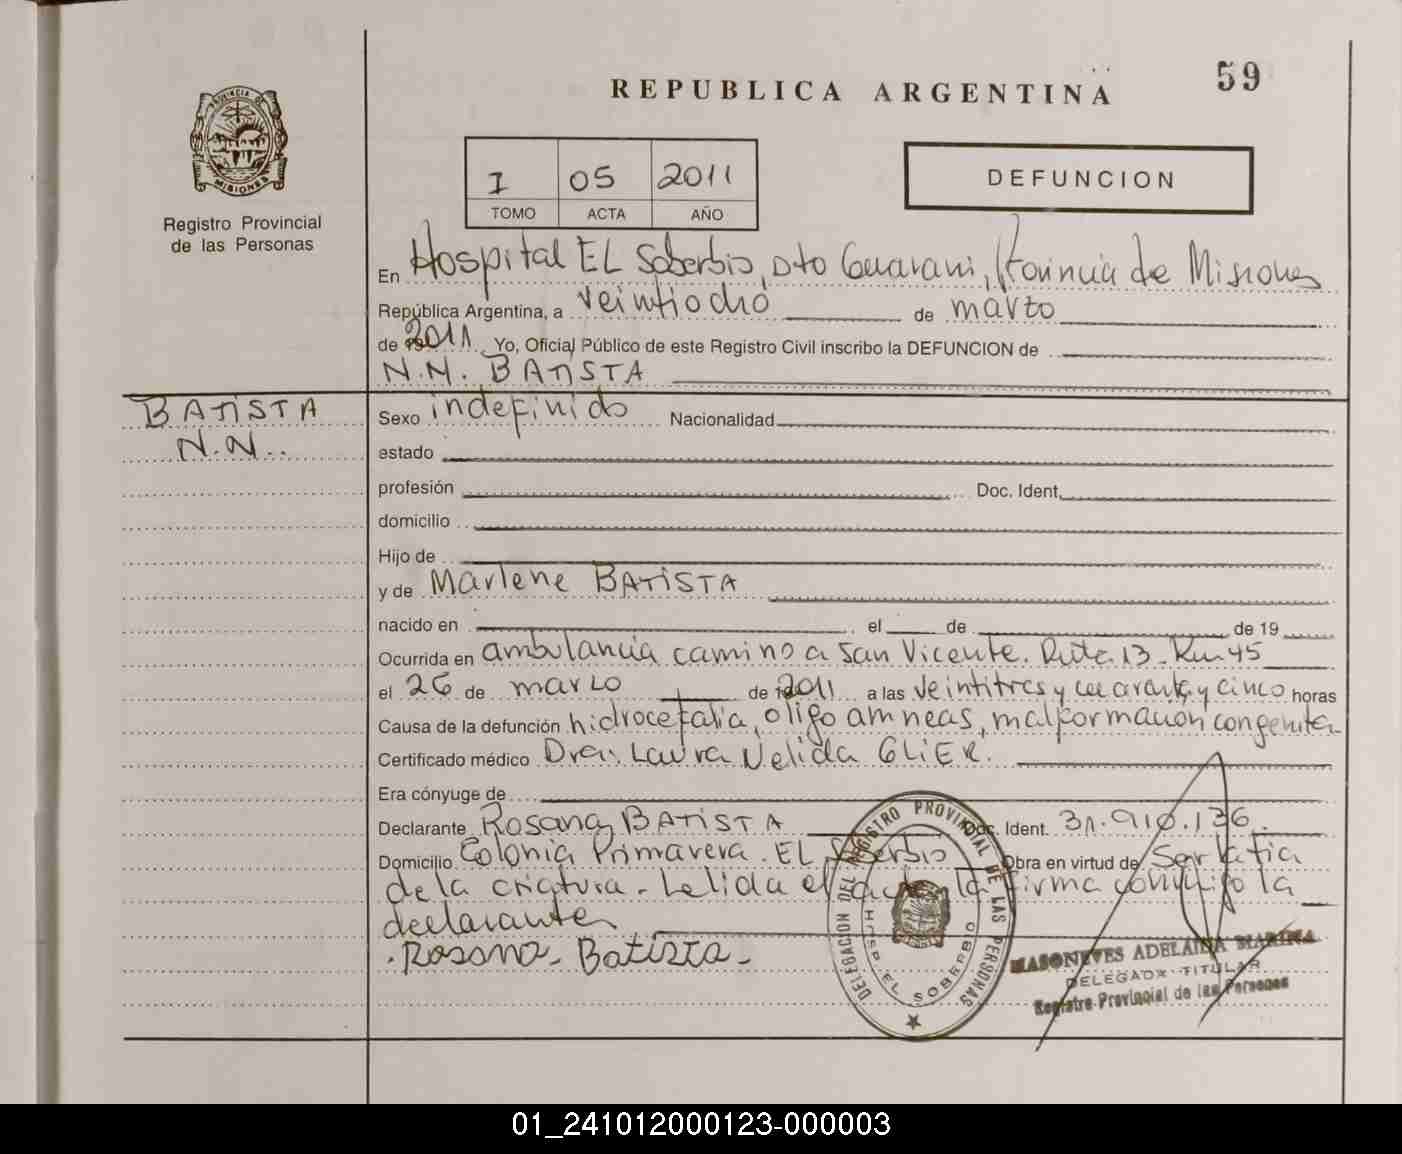 59
REPUBLICA ARGENTINA
PROVINCIA DE
MISIONES
Registro Provincial
de las Personas
I 05 2011
TOMO ACTA AÑO
DEFUNCION
En Hospital EL Soberbio, Dto Guarani, Provincia de Misiones
República Argentina, a veintiocho de marzo
de 2011 Yo, Oficial Público de este Registro Civil inscribo la DEFUNCION de
N.N. BATISTA
BATISTA
N.N.
Sexo indefinido Nacionalidad
estado
profesión Doc. Ident.
domicilio
Hijo de
y de Marlene BATISTA
nacido en el de de 19
Ocurrida en ambulancia camino a San Vicente. Ruta 13 - Km 45
el 26 de marzo de 2011 a las veintitres y cuarenta y cinco horas
Causa de la defunción hidrocefalia, oligo amneas, malformacion congenita
Certificado médico Dra. Laura Nelida GLIER.
Era cónyuge de
Declarante Rosana BATISTA Doc. Ident. 31.910.136
Domicilio Colonia Primavera. EL Soberbio Obra en virtud de Ser la tia
de la criatura. Lelida el acta, la firma conmigo la
declarante
Rosana Batista
DELEGACION DEL REGISTRO PROVINCIAL DE LAS PERSONAS
HOSP. EL SOBERBIO
MASONEVES ADELAIDA MARINA
DELEGADA TITULAR
Registro Provincial de las Personas
01_241012000123-000003